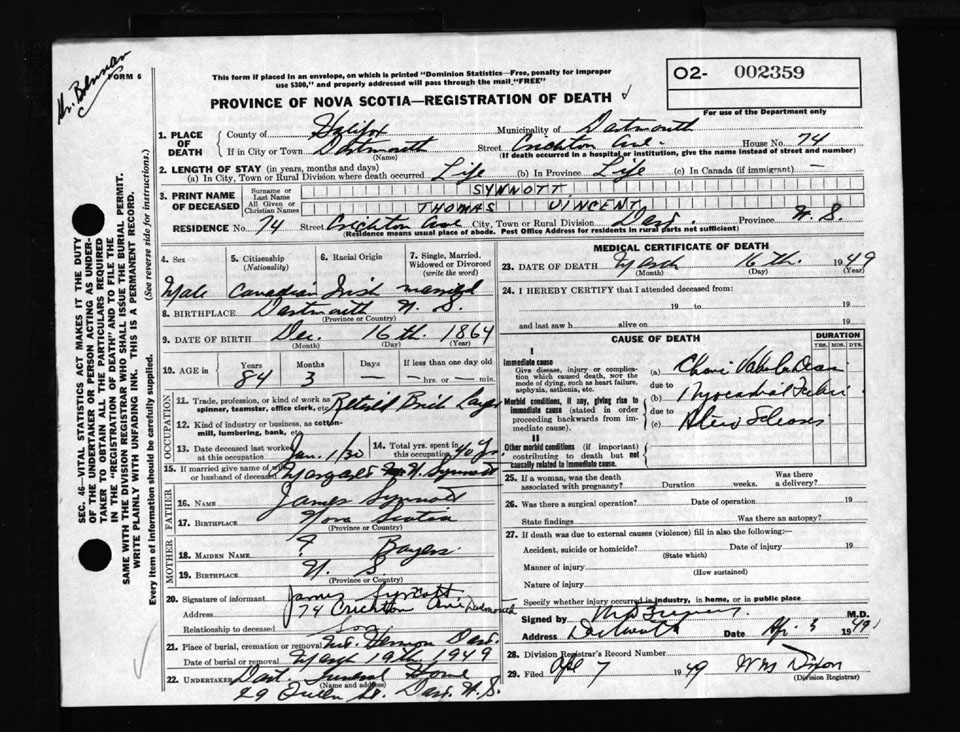 FORM 6
This form if placed in an envelope, on which is printed "Dominion Statistics—Free, penalty for improper
use $300," and properly addressed will pass through the mail "FREE"
O2- 002359
For use of the Department only
PROVINCE OF NOVA SCOTIA—REGISTRATION OF DEATH
SEC. 46—VITAL STATISTICS ACT MAKES IT THE DUTY
OF THE UNDERTAKER OR PERSON ACTING AS UNDER-
TAKER TO OBTAIN ALL THE PARTICULARS REQUIRED
IN THE "REGISTRATION OF DEATH" AND TO FILE THE
SAME WITH THE DIVISION REGISTRAR WHO SHALL ISSUE THE BURIAL PERMIT.
WRITE PLAINLY WITH UNFADING INK. THIS IS A PERMANENT RECORD.
Every item of information should be carefully supplied. (See reverse side for instructions.)
1. PLACE OF DEATH County of Halifax Municipality of Dartmouth
If in City or Town Dartmouth Street Crichton Ave. House No. 74
(Name) (If death occurred in a hospital or institution, give the name instead of street and number)
2. LENGTH OF STAY (in years, months and days)
(a) In City, Town or Rural Division where death occurred Life (b) In Province Life (c) In Canada (if immigrant) —
3. PRINT NAME OF DECEASED Surname or Last Name SYNNOTT
All Given or Christian Names THOMAS VINCENT
RESIDENCE No. 74 Street Crichton Ave City, Town or Rural Division Dart. Province N.S.
(Residence means usual place of abode. Post Office Address for residents in rural parts not sufficient)
4. Sex 5. Citizenship (Nationality) 6. Racial Origin 7. Single, Married, Widowed or Divorced (write the word)
Male Canadian Irish married
8. BIRTHPLACE Dartmouth N.S.
(Province or Country)
9. DATE OF BIRTH Dec. 16th. 1864
(Month) (Day) (Year)
10. AGE in Years Months Days If less than one day old
84 3 —hrs. or —min.
OCCUPATION
11. Trade, profession, or kind of work as
spinner, teamster, office clerk, etc. Retired Brick Layer
12. Kind of industry or business, as cotton-
mill, lumbering, bank, etc.
13. Date deceased last worked at this occupation Jan. 1/30 14. Total yrs. spent in this occupation 40 Yrs.
15. If married give name of wife or husband of deceased Margaret N. Synnott
FATHER
16. NAME James Synnott
17. BIRTHPLACE Nova Scotia
(Province or Country)
MOTHER
18. MAIDEN NAME ? Bayers
19. BIRTHPLACE N.S.
(Province or Country)
20. Signature of informant James Synnott
Address 74 Crichton Ave Dartmouth
Relationship to deceased Son
21. Place of burial, cremation or removal Mt. Hermon Dart.
Date of burial or removal March 19th 1949
22. UNDERTAKER Dart. Funeral Home
(Name and address)
29 Queen St. Dart. N.S.
MEDICAL CERTIFICATE OF DEATH
23. DATE OF DEATH March 16th. 1949
(Month) (Day) (Year)
24. I HEREBY CERTIFY that I attended deceased from:
19 to 19
and last saw h alive on 19
CAUSE OF DEATH DURATION
YRS. MOS. DYS.
I
Immediate cause
Give disease, injury or complica-
tion which caused death, NOT the
mode of dying, such as heart failure,
asphyxia, asthenia, etc.
(a)
due to
Morbid conditions, if any, giving rise to
immediate cause (stated in order
proceeding backwards from imme-
diate cause).
(b)
due to
(c)
II
Other morbid conditions (if important)
contributing to death but not
causally related to immediate cause.
25. If a woman, was the death
associated with pregnancy? Duration weeks. Was there a delivery?
26. Was there a surgical operation? Date of operation 19
State findings Was there an autopsy?
27. If death was due to external causes (violence) fill in also the following:—
Accident, suicide or homicide? Date of injury 19
(State which)
Manner of injury
(How sustained)
Nature of injury
Specify whether injury occurred in industry, in home, or in public place
Signed by M.D.
Address Dartmouth Date Apr. 3 1949
28. Division Registrar's Record Number
29. Filed Apl 7 1949 Wm Dixon
(Division Registrar)